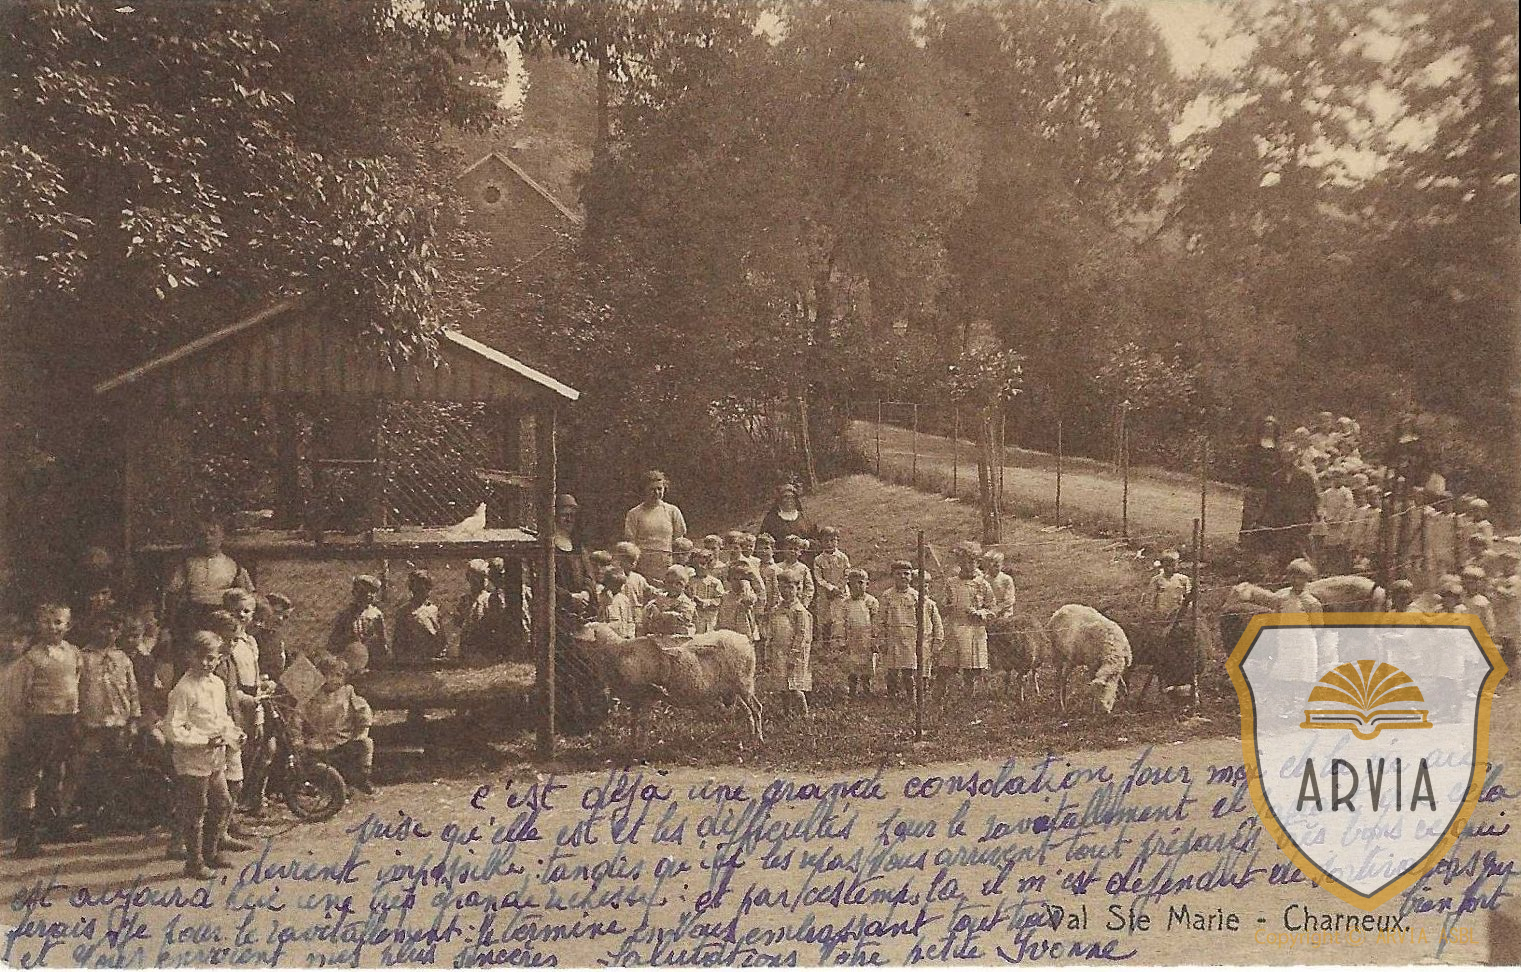 c'est déjà une grande consolation pour moi et la vie au
prise qu'elle est et les difficultés pour le ravitaillement et
devient impossible : tandis qu'ici les repas nous arrivent tout préparés, très bons ce qui
est aujourd'hui une très grande richesse : et par ces temps là, il m'est défendut de sortir
ferais je pour le ravitaillement : je termine en vous embrassant tout bien fort
et vous envoient mes plus sincères Salutations Votre petite Yvonne
Val Ste Marie - Charneux.
ARVIA
Copyright © ARVIA ASBL